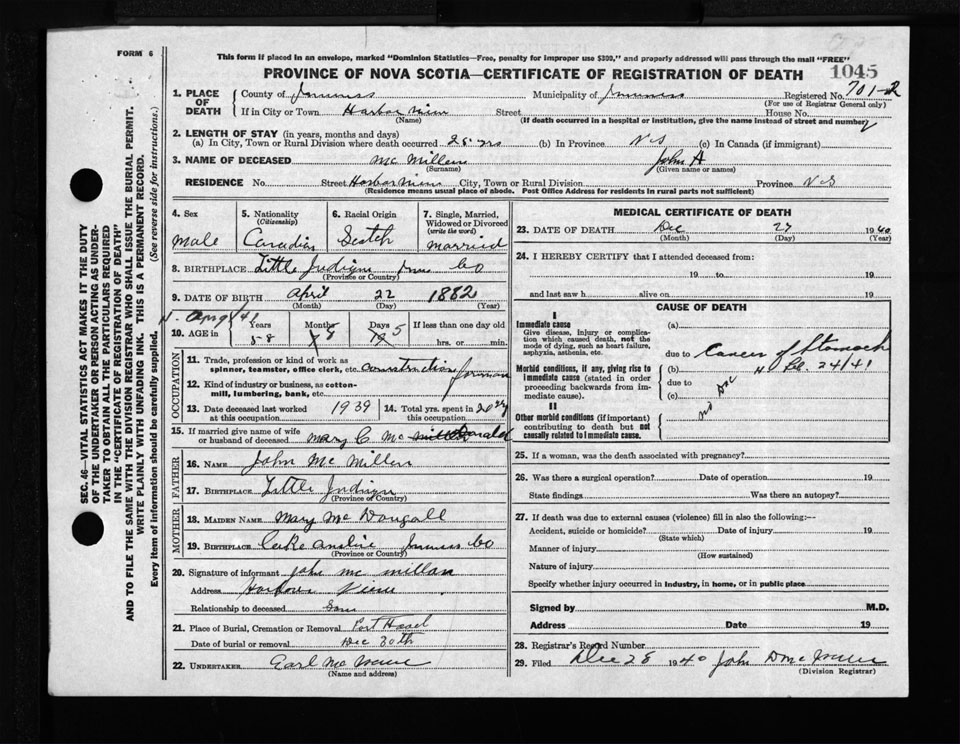 FORM 6
This form if placed in an envelope, marked "Dominion Statistics—Free, penalty for improper use $300," and properly addressed will pass through the mail "FREE"
PROVINCE OF NOVA SCOTIA—CERTIFICATE OF REGISTRATION OF DEATH
1045
1. PLACE OF DEATH
County of Municipality of Registered No. 701-2
(For use of Registrar General only)
If in City or Town Harbor View Street House No.
(Name) (If death occurred in a hospital or institution, give the name instead of street and number)
2. LENGTH OF STAY (in years, months and days)
(a) In City, Town or Rural Division where death occurred 28 yrs (b) In Province N S (c) In Canada (if immigrant)
3. NAME OF DECEASED Mc Millan John A
(Surname) (Given name or names)
RESIDENCE No. Street Harbor View City, Town or Rural Division Province N S
(Residence means usual place of abode. Post Office Address for residents in rural parts not sufficient)
SEC. 46—VITAL STATISTICS ACT MAKES IT THE DUTY
OF THE UNDERTAKER OR PERSON ACTING AS UNDER-
TAKER TO OBTAIN ALL THE PARTICULARS REQUIRED
IN THE "CERTIFICATE OF REGISTRATION OF DEATH"
AND TO FILE THE SAME WITH THE DIVISION REGISTRAR WHO SHALL ISSUE THE BURIAL PERMIT.
WRITE PLAINLY WITH UNFADING INK. THIS IS A PERMANENT RECORD.
Every item of information should be carefully supplied. (See reverse side for instructions.)
4. Sex
Male
5. Nationality
(Citizenship)
Canadian
6. Racial Origin
Scotch
7. Single, Married,
Widowed or Divorced
(write the word)
married
8. BIRTHPLACE Little Judique Co
(Province or Country)
9. DATE OF BIRTH April 22 1882
(Month) (Day) (Year)
10. AGE in
Years Months Days If less than one day old
58 8 5 hrs. or min.
OCCUPATION
11. Trade, profession or kind of work as
spinner, teamster, office clerk, etc. construction foreman
12. Kind of industry or business, as cotton-
mill, lumbering, bank, etc.
13. Date deceased last worked
at this occupation 1939
14. Total yrs. spent in
this occupation 20 yr
15. If married give name of wife
or husband of deceased Mary C Mc Donald
FATHER
16. NAME John Mc Millan
17. BIRTHPLACE Little Judique
(Province or Country)
MOTHER
18. MAIDEN NAME Mary Mc Dougall
19. BIRTHPLACE Lake Co
(Province or Country)
20. Signature of informant John Mc Millan
Address Harbour View
Relationship to deceased Son
21. Place of Burial, Cremation or Removal Port
Date of burial or removal Dec 30th
22. UNDERTAKER Earl Mc
(Name and address)
MEDICAL CERTIFICATE OF DEATH
23. DATE OF DEATH Dec 27 1940
(Month) (Day) (Year)
24. I HEREBY CERTIFY that I attended deceased from:
19 to 19
and last saw h alive on 19
CAUSE OF DEATH
I
Immediate cause
Give disease, injury or complica-
tion which caused death, not the
mode of dying, such as heart failure,
asphyxia, asthenia, etc.
(a)
due to Cancer of Stomach
Morbid conditions, if any, giving rise to
immediate cause (stated in order
proceeding backwards from im-
mediate cause).
(b) 24/41
due to
(c)
no Doc
II
Other morbid conditions (if important)
contributing to death but not
causally related to immediate cause.
25. If a woman, was the death associated with pregnancy?
26. Was there a surgical operation? Date of operation 19
State findings Was there an autopsy?
27. If death was due to external causes (violence) fill in also the following:—
Accident, suicide or homicide? Date of injury 19
(State which)
Manner of injury
(How sustained)
Nature of injury
Specify whether injury occurred in industry, in home, or in public place
Signed by M.D.
Address Date 19
28. Registrar's Record Number
29. Filed Dec 28 1940 John D Mc
(Division Registrar)